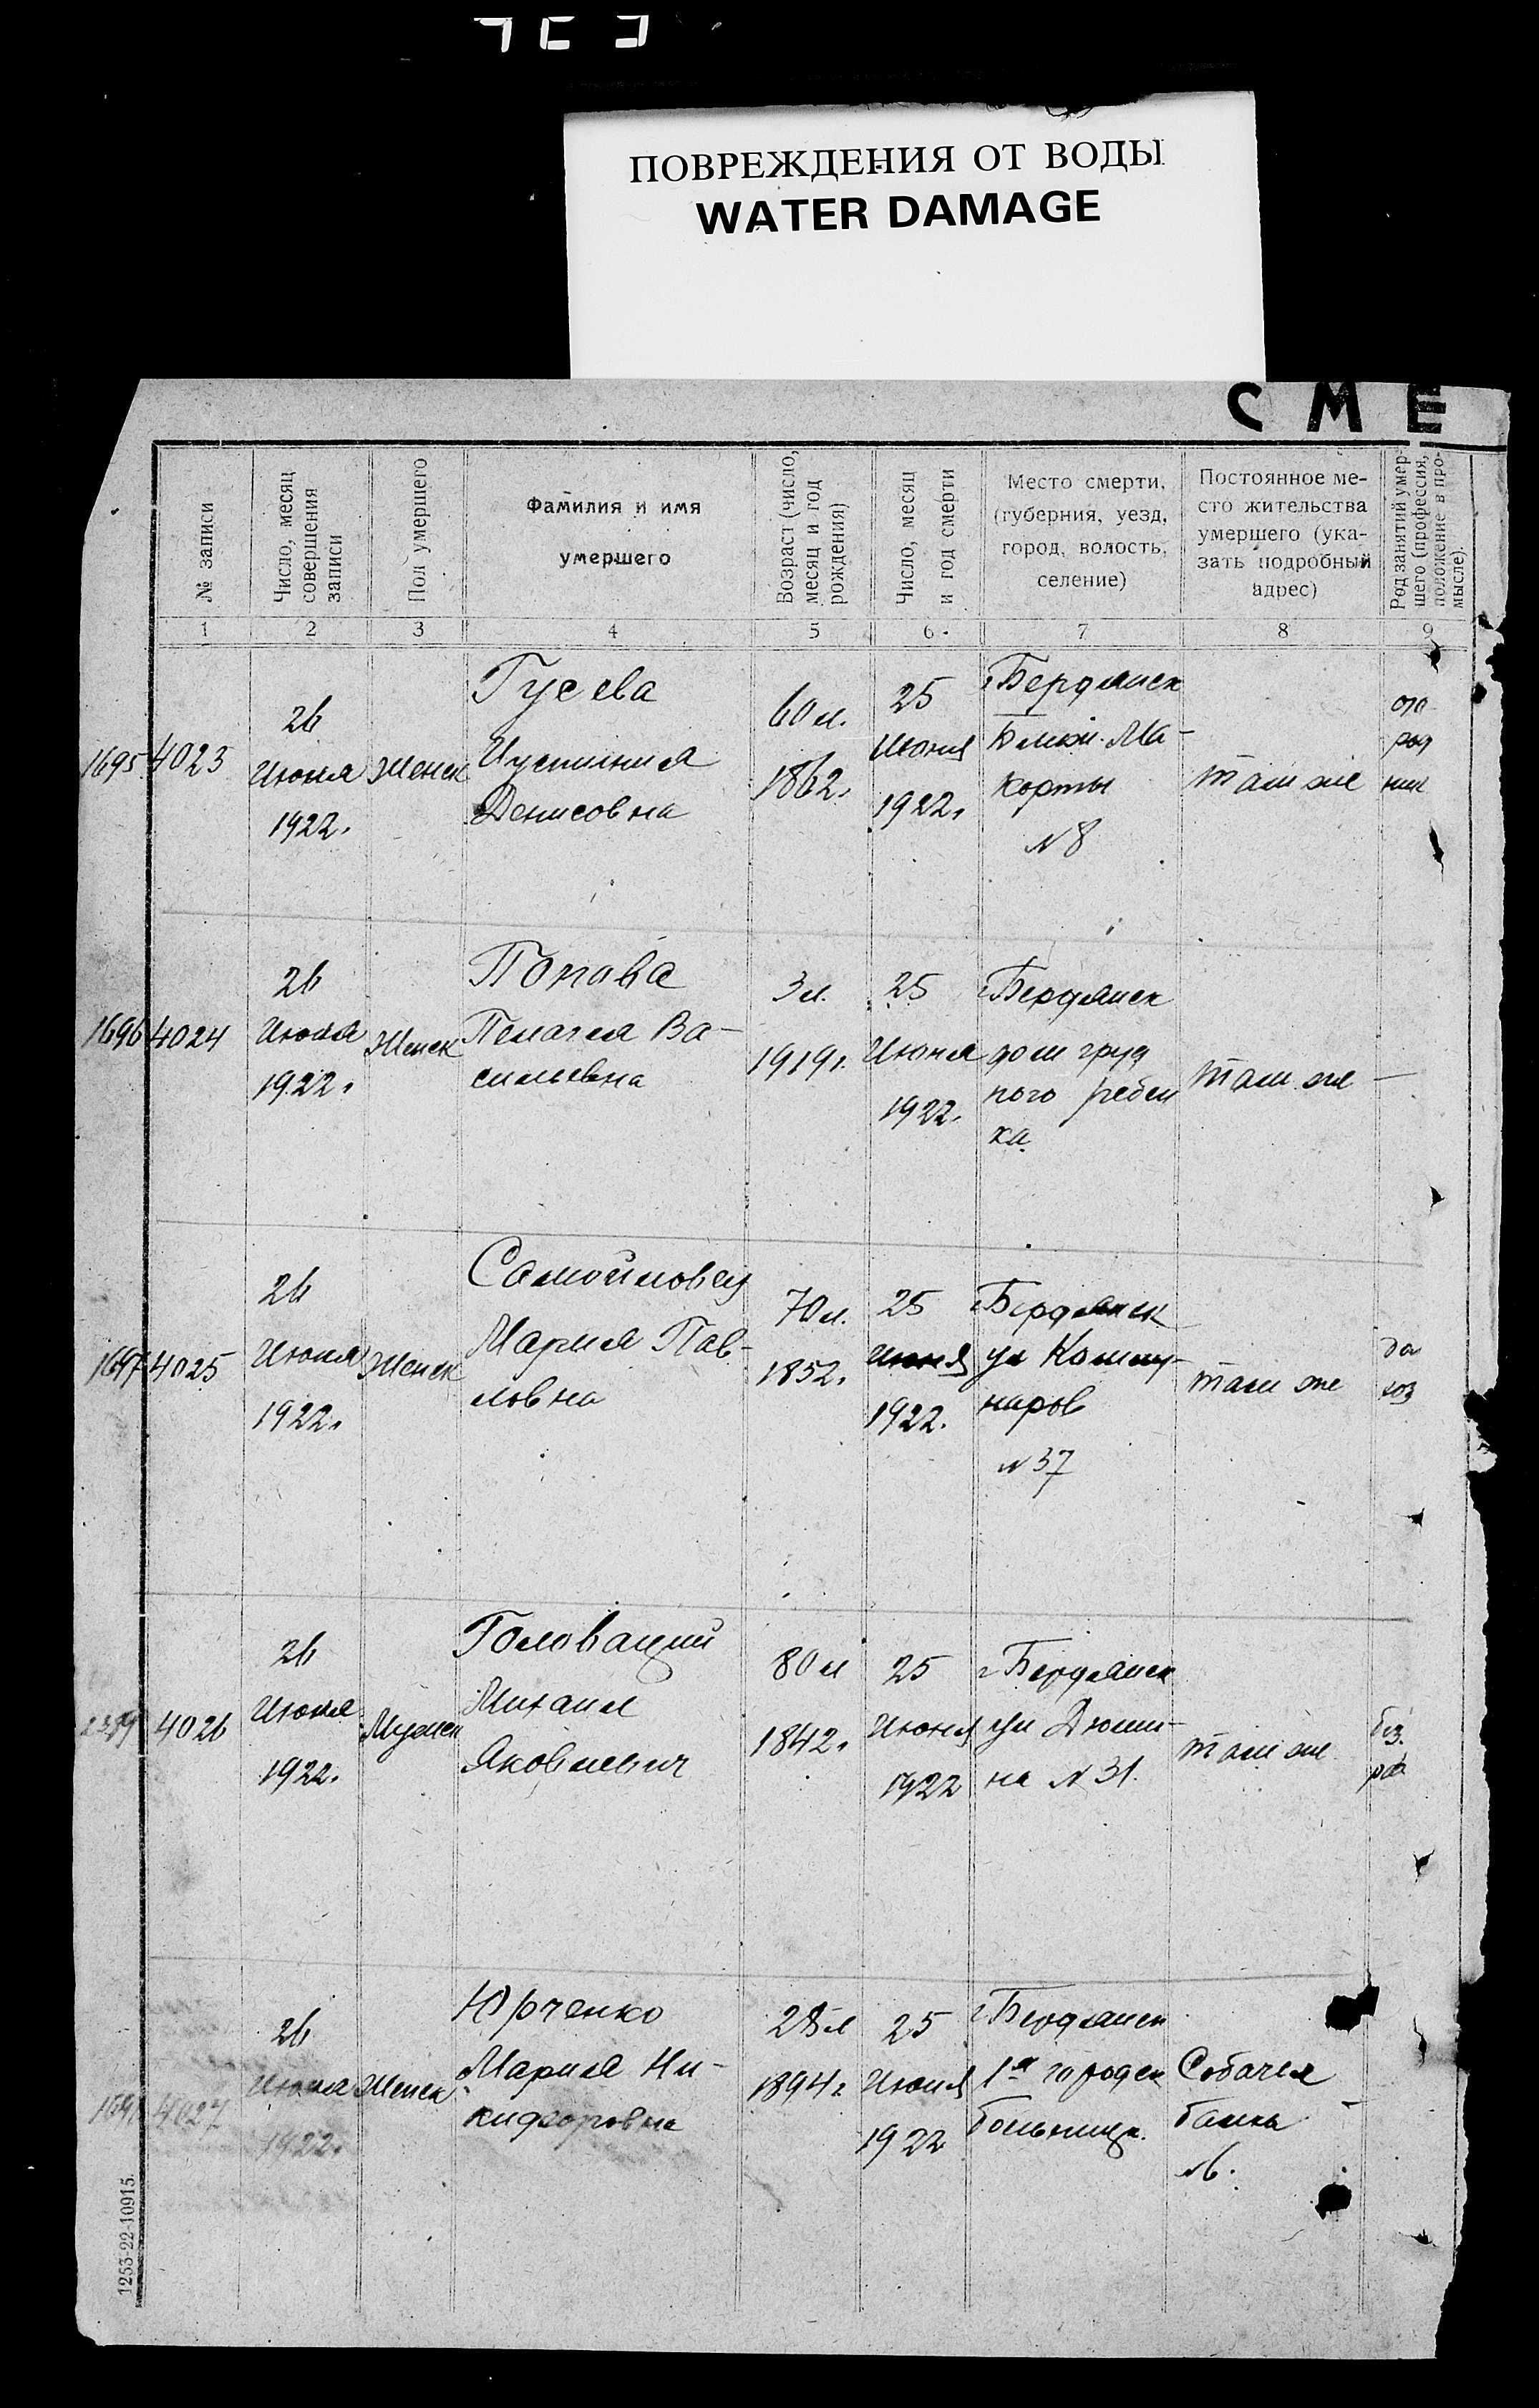 ПОВРЕЖДЕНИЯ ОТ ВОДЫ
WATER DAMAGE
СМЕ
№ записи
Число, месяц
совершения
записи
Пол умершего
Фамилия и имя
умершего
Возраст (число,
месяц и год
рождения)
Число, месяц
и год смерти
Место смерти,
(губерния, уезд,
город, волость,
селение)
Постоянное ме-
сто жительства
умершего (ука-
зать подробный
адрес)
Род занятий умер-
шего (профессия,
положение в про-
мысле).
1 2 3 4 5 6 7 8 9
1695 4023
26
Июня
1922.
Женск
Гусева
Иустиния
Денисовна
60 л.
1862.
25
Июня
1922.
г Бердянск
Ближ. Ма-
корты
№ 8
там же
ого
род
ник
1696 4024
26
Июня
1922.
Женск
Попова
Пелагея Ва-
сильевна
3 л.
1919г.
25
Июня
1922.
г Бердянск
дом груд
ного ребен
ка
там же —
1697 4025
26
Июня
1922.
Женск
Самойловец
Мария Пав-
ловна
70 л.
1852.
25
Июня
1922.
г Бердянск
ул Комму-
наров
№ 37
там же
до
хоз
4026
26
Июня
1922.
Мужск
Головащий
Михаил
Яковлевич
80 л
1842.
25
Июня
1922
г Бердянск
ул Дюми-
на № 31.
там же
без.
раб
4027
26
Июня
1922.
Женск
Юрченко
Мария Ни-
кифоровна
28 л
1894г
25
Июня
1922
г Бердянск
1я городск
больница.
Собачья
балка —
№6.
1253-22-10915.